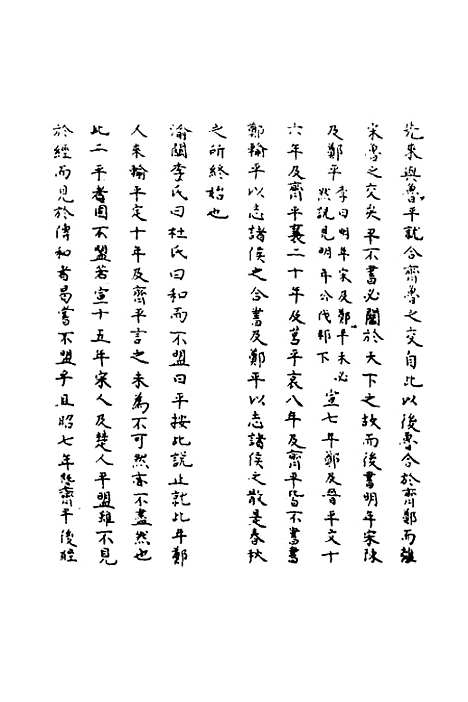 先來與魯平就合齊魯之交自此以後魯合於齊鄭而離
宋魯之交矣平不書必關於天下之故而後書明年宋陳
及鄭平李曰明年宋及鄭平未必然說見明年公伐邾下宣七年鄭及晉平文十
六年及齊平襄二十年及莒平哀八年及齊平皆不書書
鄭輸平以志諸侯之合書及鄭平以志諸侯之散是春秋
之所終始也
渝關李氏曰杜氏曰和而不盟曰平按此說止就此年鄭
人來輸平定十年及齊平言之未為不可然亦不盡然也
此二平者固不盟若宣十五年宋人及楚人平盟雖不見
於經而見於傳和者曷嘗不盟乎且昭七年暨齊平後經